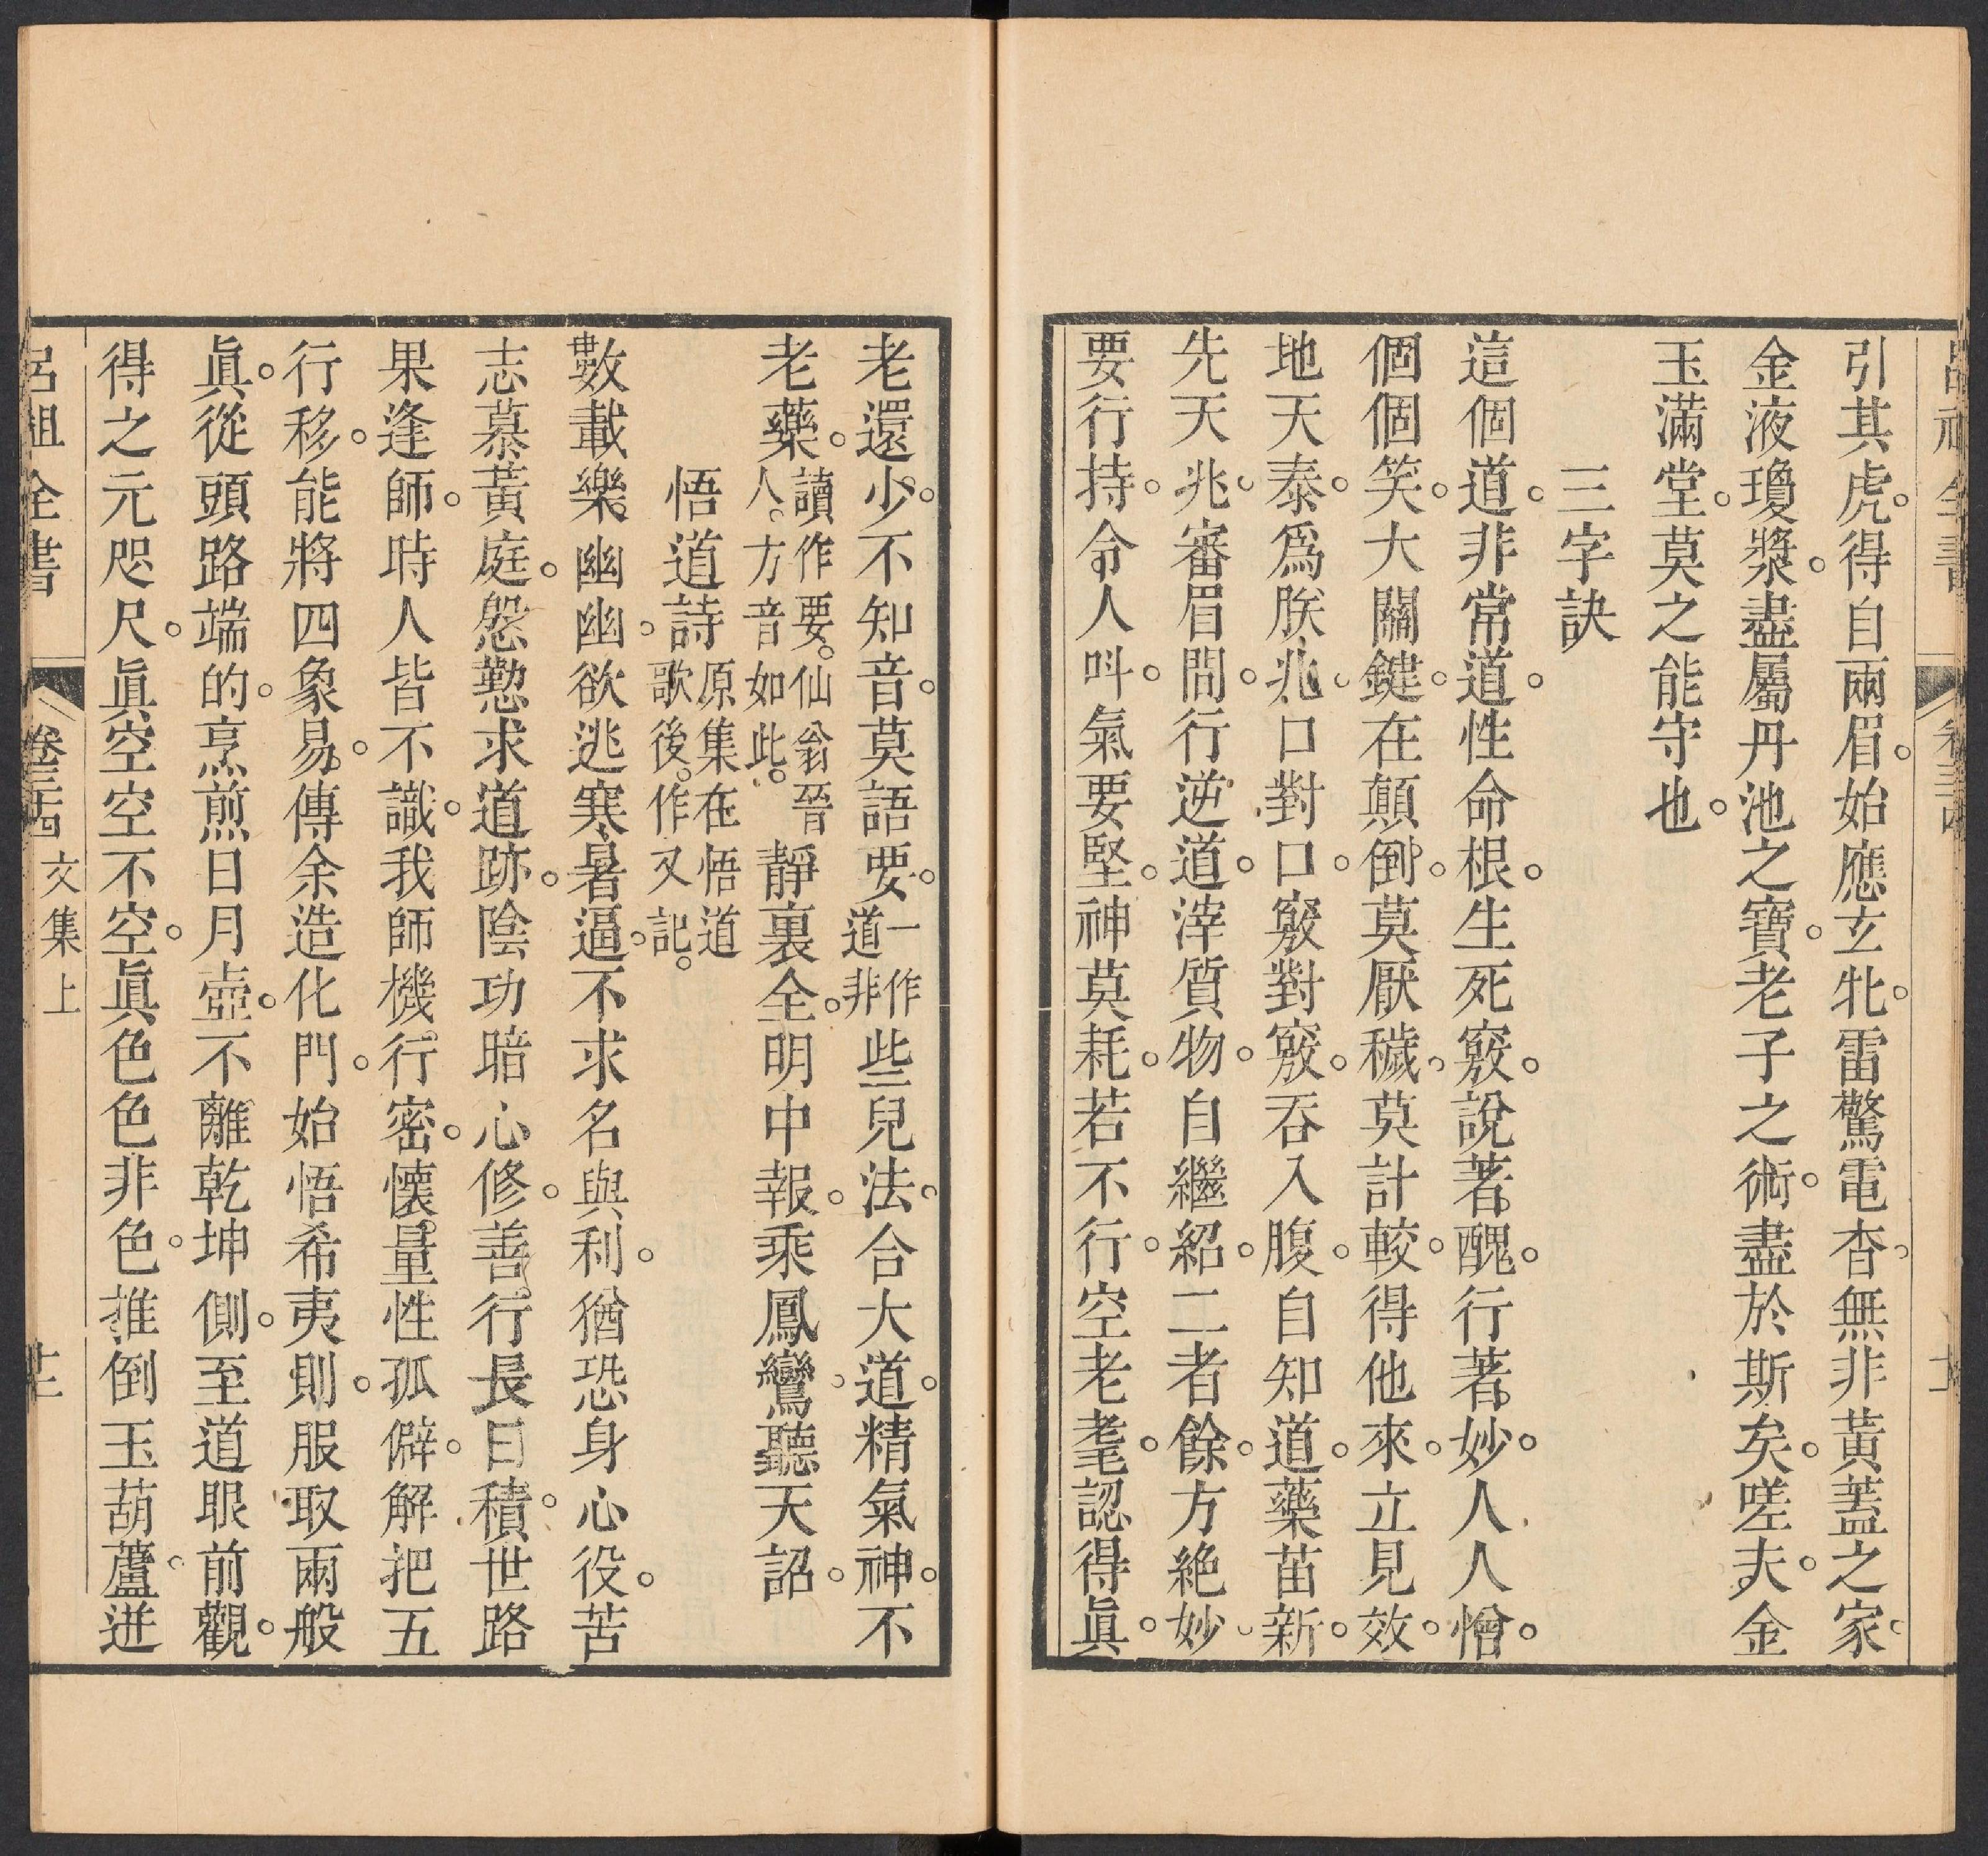 引其虎。得自兩眉。始應玄牝。雷驚電杳。無非黃蓋之家。
金液瓊漿。盡屬丹池之寶。老子之術。盡於斯矣。嗟夫。金
玉滿堂。莫之能守也。
三字訣
這個道。非常道。性命根。生死竅。說著醜。行著妙。人人憎。
個個笑。大關鍵。在顛倒。莫厭穢。莫計較。得他來。立見效。
地天泰。為朕兆。口對口。竅對竅。吞入腹。自知道。藥苗新。
先天兆。審眉間。行逆道。滓質物。自繼紹。二者餘。方絕妙。
要行持。令人叫。氣要堅。神莫耗。若不行。空老耄。認得眞。
老還少。不知音。莫語要。一作道非些兒法。合大道。精氣神。不
老藥。讀作要。仙翁晉人。方音如此。靜裏全。明中報。乘鳳鸞。聽天詔。
悟道詩 原集在悟道歌後。作又記。
數載樂幽幽。欲逃寒暑逼。不求名與利。猶恐身心役。苦
志慕黃庭。慇懃求道跡。陰功暗心修。善行長日積。世路
果逢師。時人皆不識。我師機行密。懷量性孤僻。解把五
行移。能將四象易。傳余造化門。始悟希夷則。服取兩般
眞。從頭路端的。烹煎日月壺。不離乾坤側。至道眼前觀。
得之元咫尺。眞空空不空。眞色色非色。推倒玉葫蘆。迸
呂祖全書 卷三十四 文集上 廿二